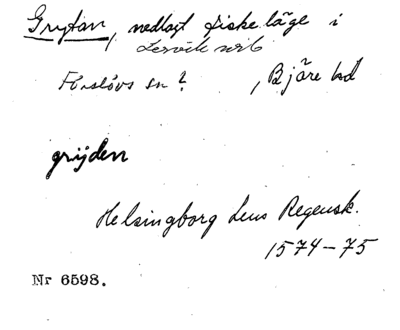 Grytan, nedlagt fiskeläge i
Förslövs sn?, Bjäre hd
grijden
Helsingborg Lens Regensk.
1574-75
Nr 6598.